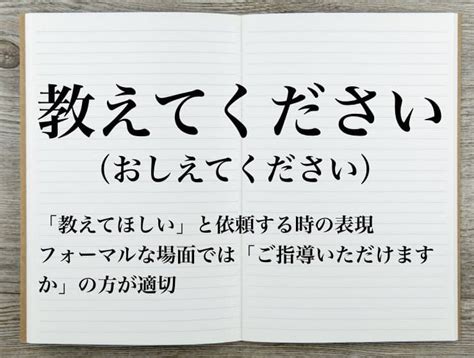 教えてください
（おしえてください）
「教えてほしい」と依頼する時の表現
フォーマルな場面では「ご指導いただけます
か」の方が適切